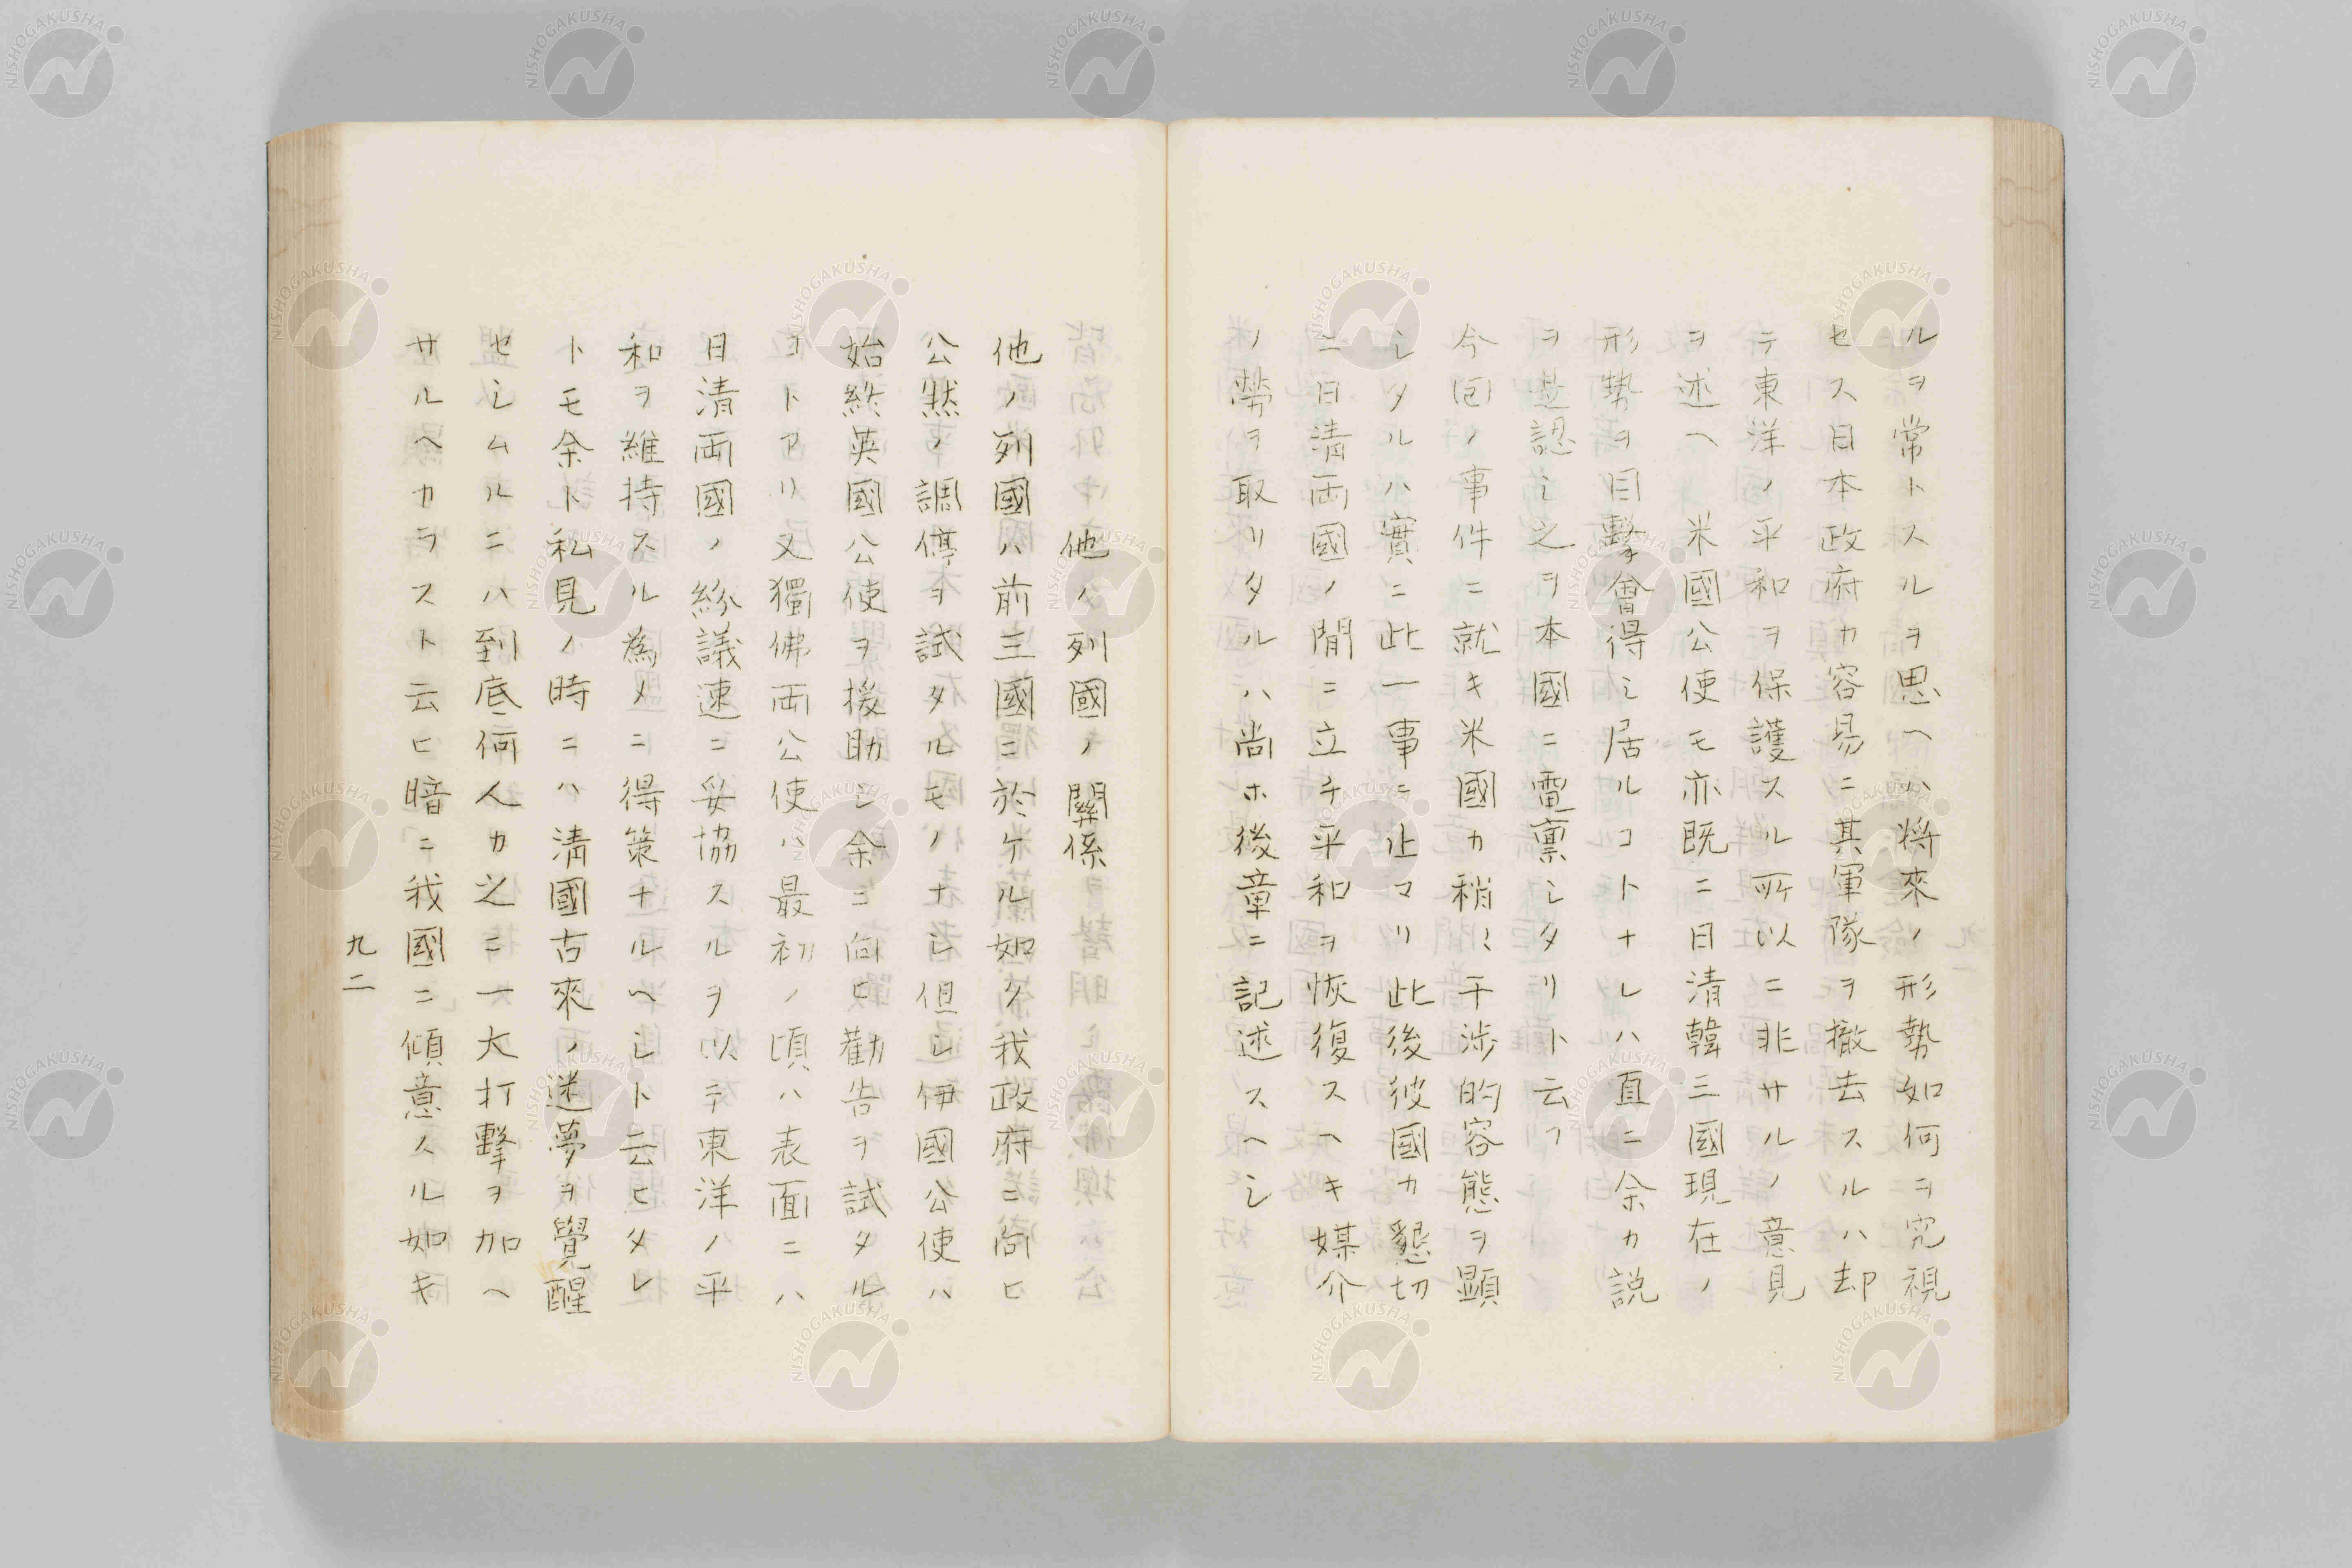 ルヲ常トスルヲ思ヘハ將來ノ形勢如何ヲ究視
セス日本政府カ容易ニ其軍隊ヲ撤去スルハ却
テ東洋ノ平和ヲ保護スル所以ニ非サルノ意見
ヲ述ヘ　米國公使モ亦既ニ日清韓三國現在ノ
形勢ヲ目擊會得シ居ルコトナレハ直ニ余カ説
ヲ是認シ之ヲ本國ニ電稟シタリト云フ
今回ノ事件ニ就キ米國カ稍〻干渉的容態ヲ顯
シタルハ實ニ此一事ニ止マリ此後彼國カ懇切
ニ日清両國ノ間ニ立チ平和ヲ恢復スヘキ媒介
ノ勞ヲ取リタルハ尚ホ後章ニ記述スヘシ
他ノ列國ノ關係
他ノ列國ハ前三國ニ於ケル如ク我政府ニ向ヒ
公然ノ調停ヲ試タルモノナシ但シ伊國公使ハ
始終英國公使ヲ援助シ余ニ向ヒ勸告ヲ試タル
コトアリ又獨佛両公使ハ最初ノ頃ハ表面ニハ
日清両國ノ紛議速ニ妥協スルヲ以テ東洋ノ平
和ヲ維持スル為メニ得策ナルヘシト云ヒタレ
トモ余ト私見ノ時ニハ清國古來ノ迷夢ヲ覺醒
セシムルニハ到底何人カ之ニ一大打擊ヲ加ヘ
サルヘカラスト云ヒ暗ニ我國ニ傾意スル如キ
九二
NISHOGAKUSHA